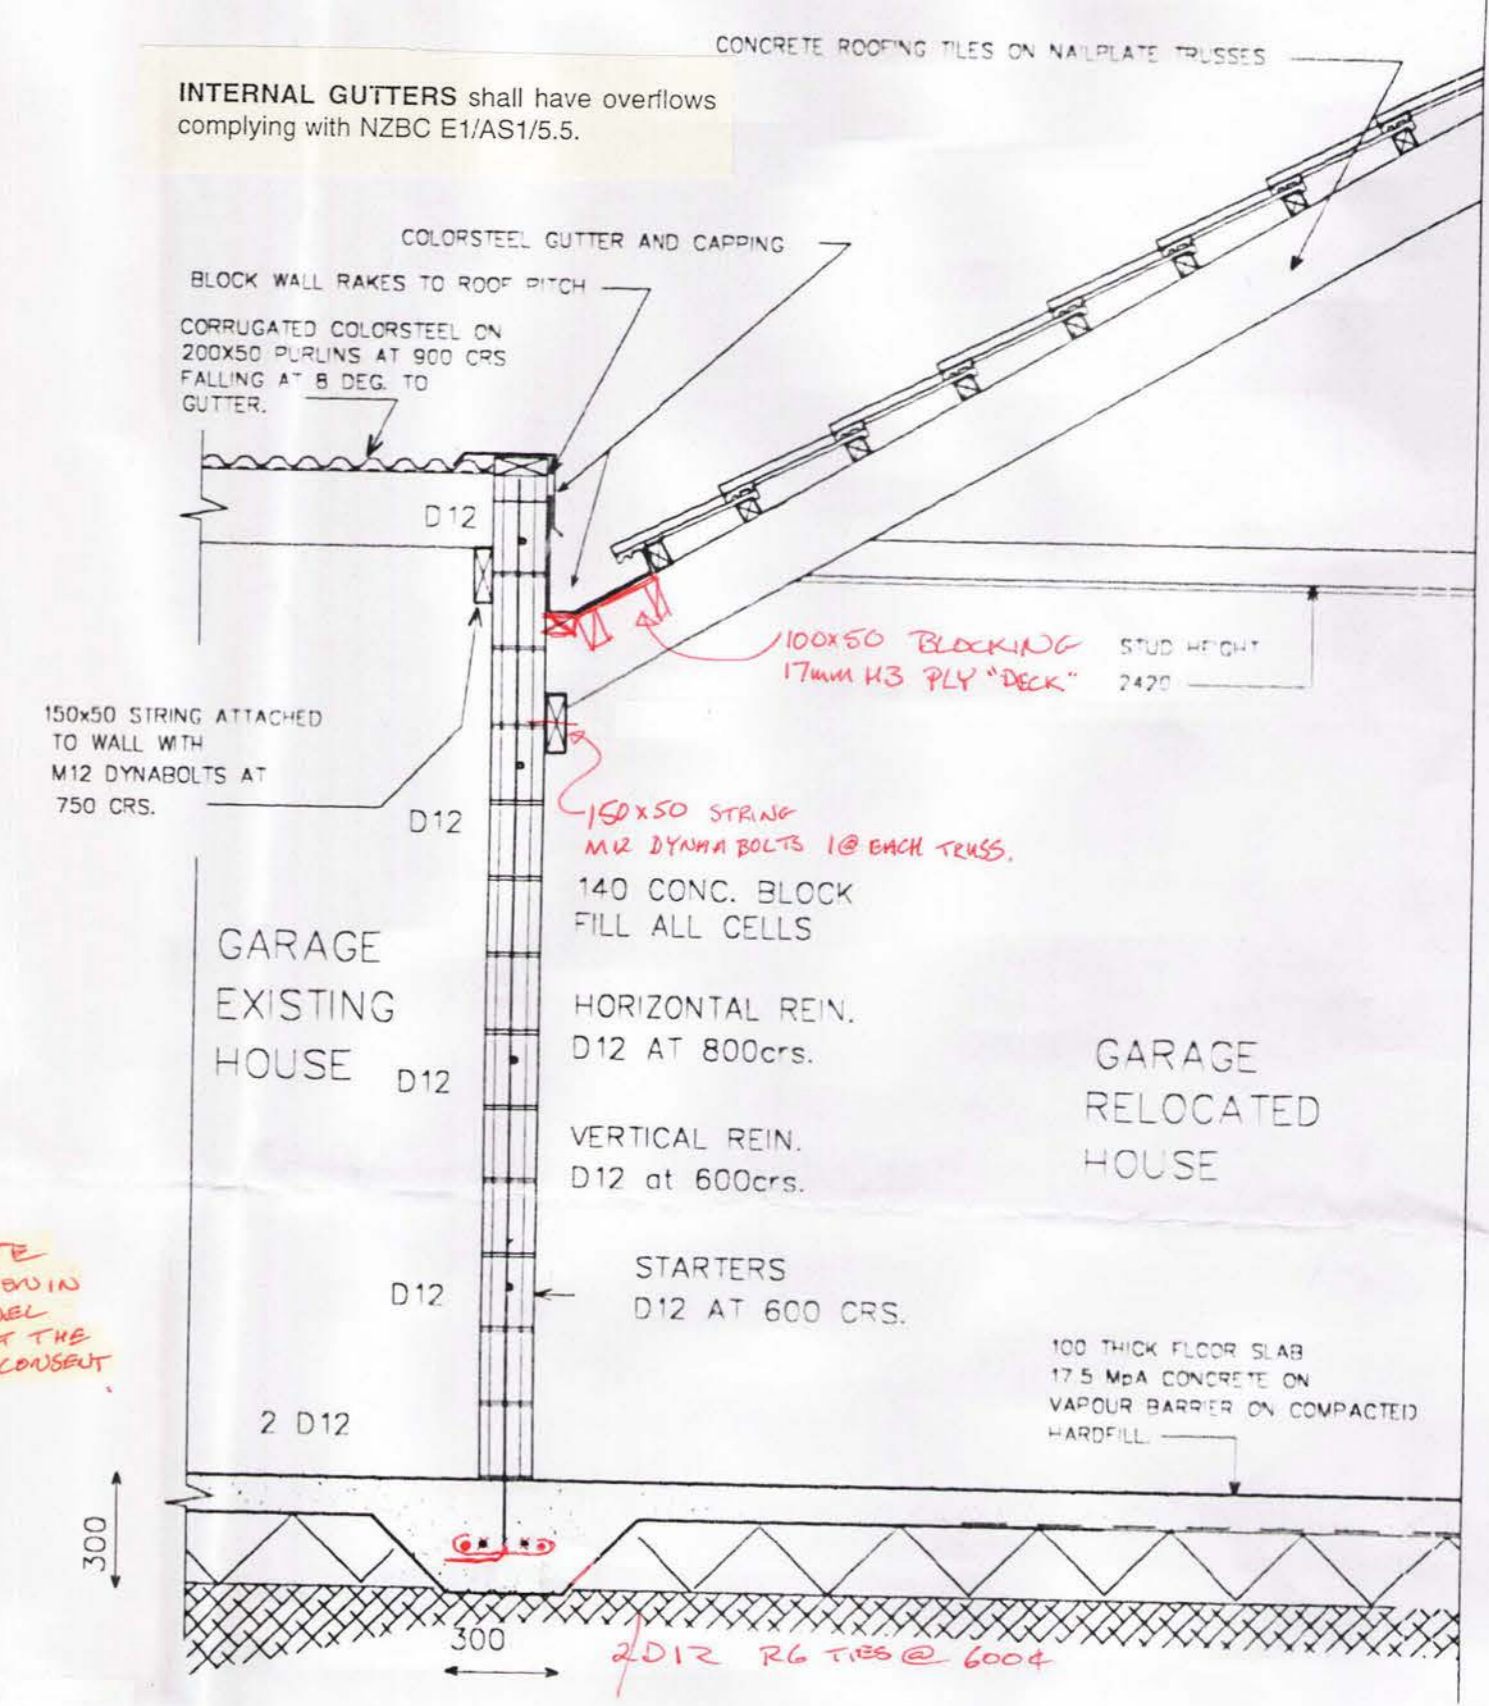 CONCRETE ROOFING TILES ON NAILPLATE TRUSSES
INTERNAL GUTTERS shall have overflows
complying with NZBC E1/AS1/5.5.
COLORSTEEL GUTTER AND CAPPING
BLOCK WALL RAKES TO ROOF PITCH
CORRUGATED COLORSTEEL ON
200X50 PURLINS AT 900 CRS
FALLING AT 8 DEG. TO
GUTTER.
D12
100x50 BLOCKING
17mm H3 PLY "DECK"
STUD HEIGHT
2420
150x50 STRING ATTACHED
TO WALL WITH
M12 DYNABOLTS AT
750 CRS.
D12
150x50 STRING
M12 DYNAA BOLTS 1@ EACH TRUSS.
140 CONC. BLOCK
FILL ALL CELLS
GARAGE
EXISTING
HOUSE
D12
HORIZONTAL REIN.
D12 AT 800crs.
GARAGE
RELOCATED
HOUSE
VERTICAL REIN.
D12 at 600crs.
THE
CONSENT
D12
STARTERS
D12 AT 600 CRS.
100 THICK FLOOR SLAB
17.5 MpA CONCRETE ON
VAPOUR BARRIER ON COMPACTED
HARDFILL.
2 D12
300
300
2D12 R6 TIES @ 600¢